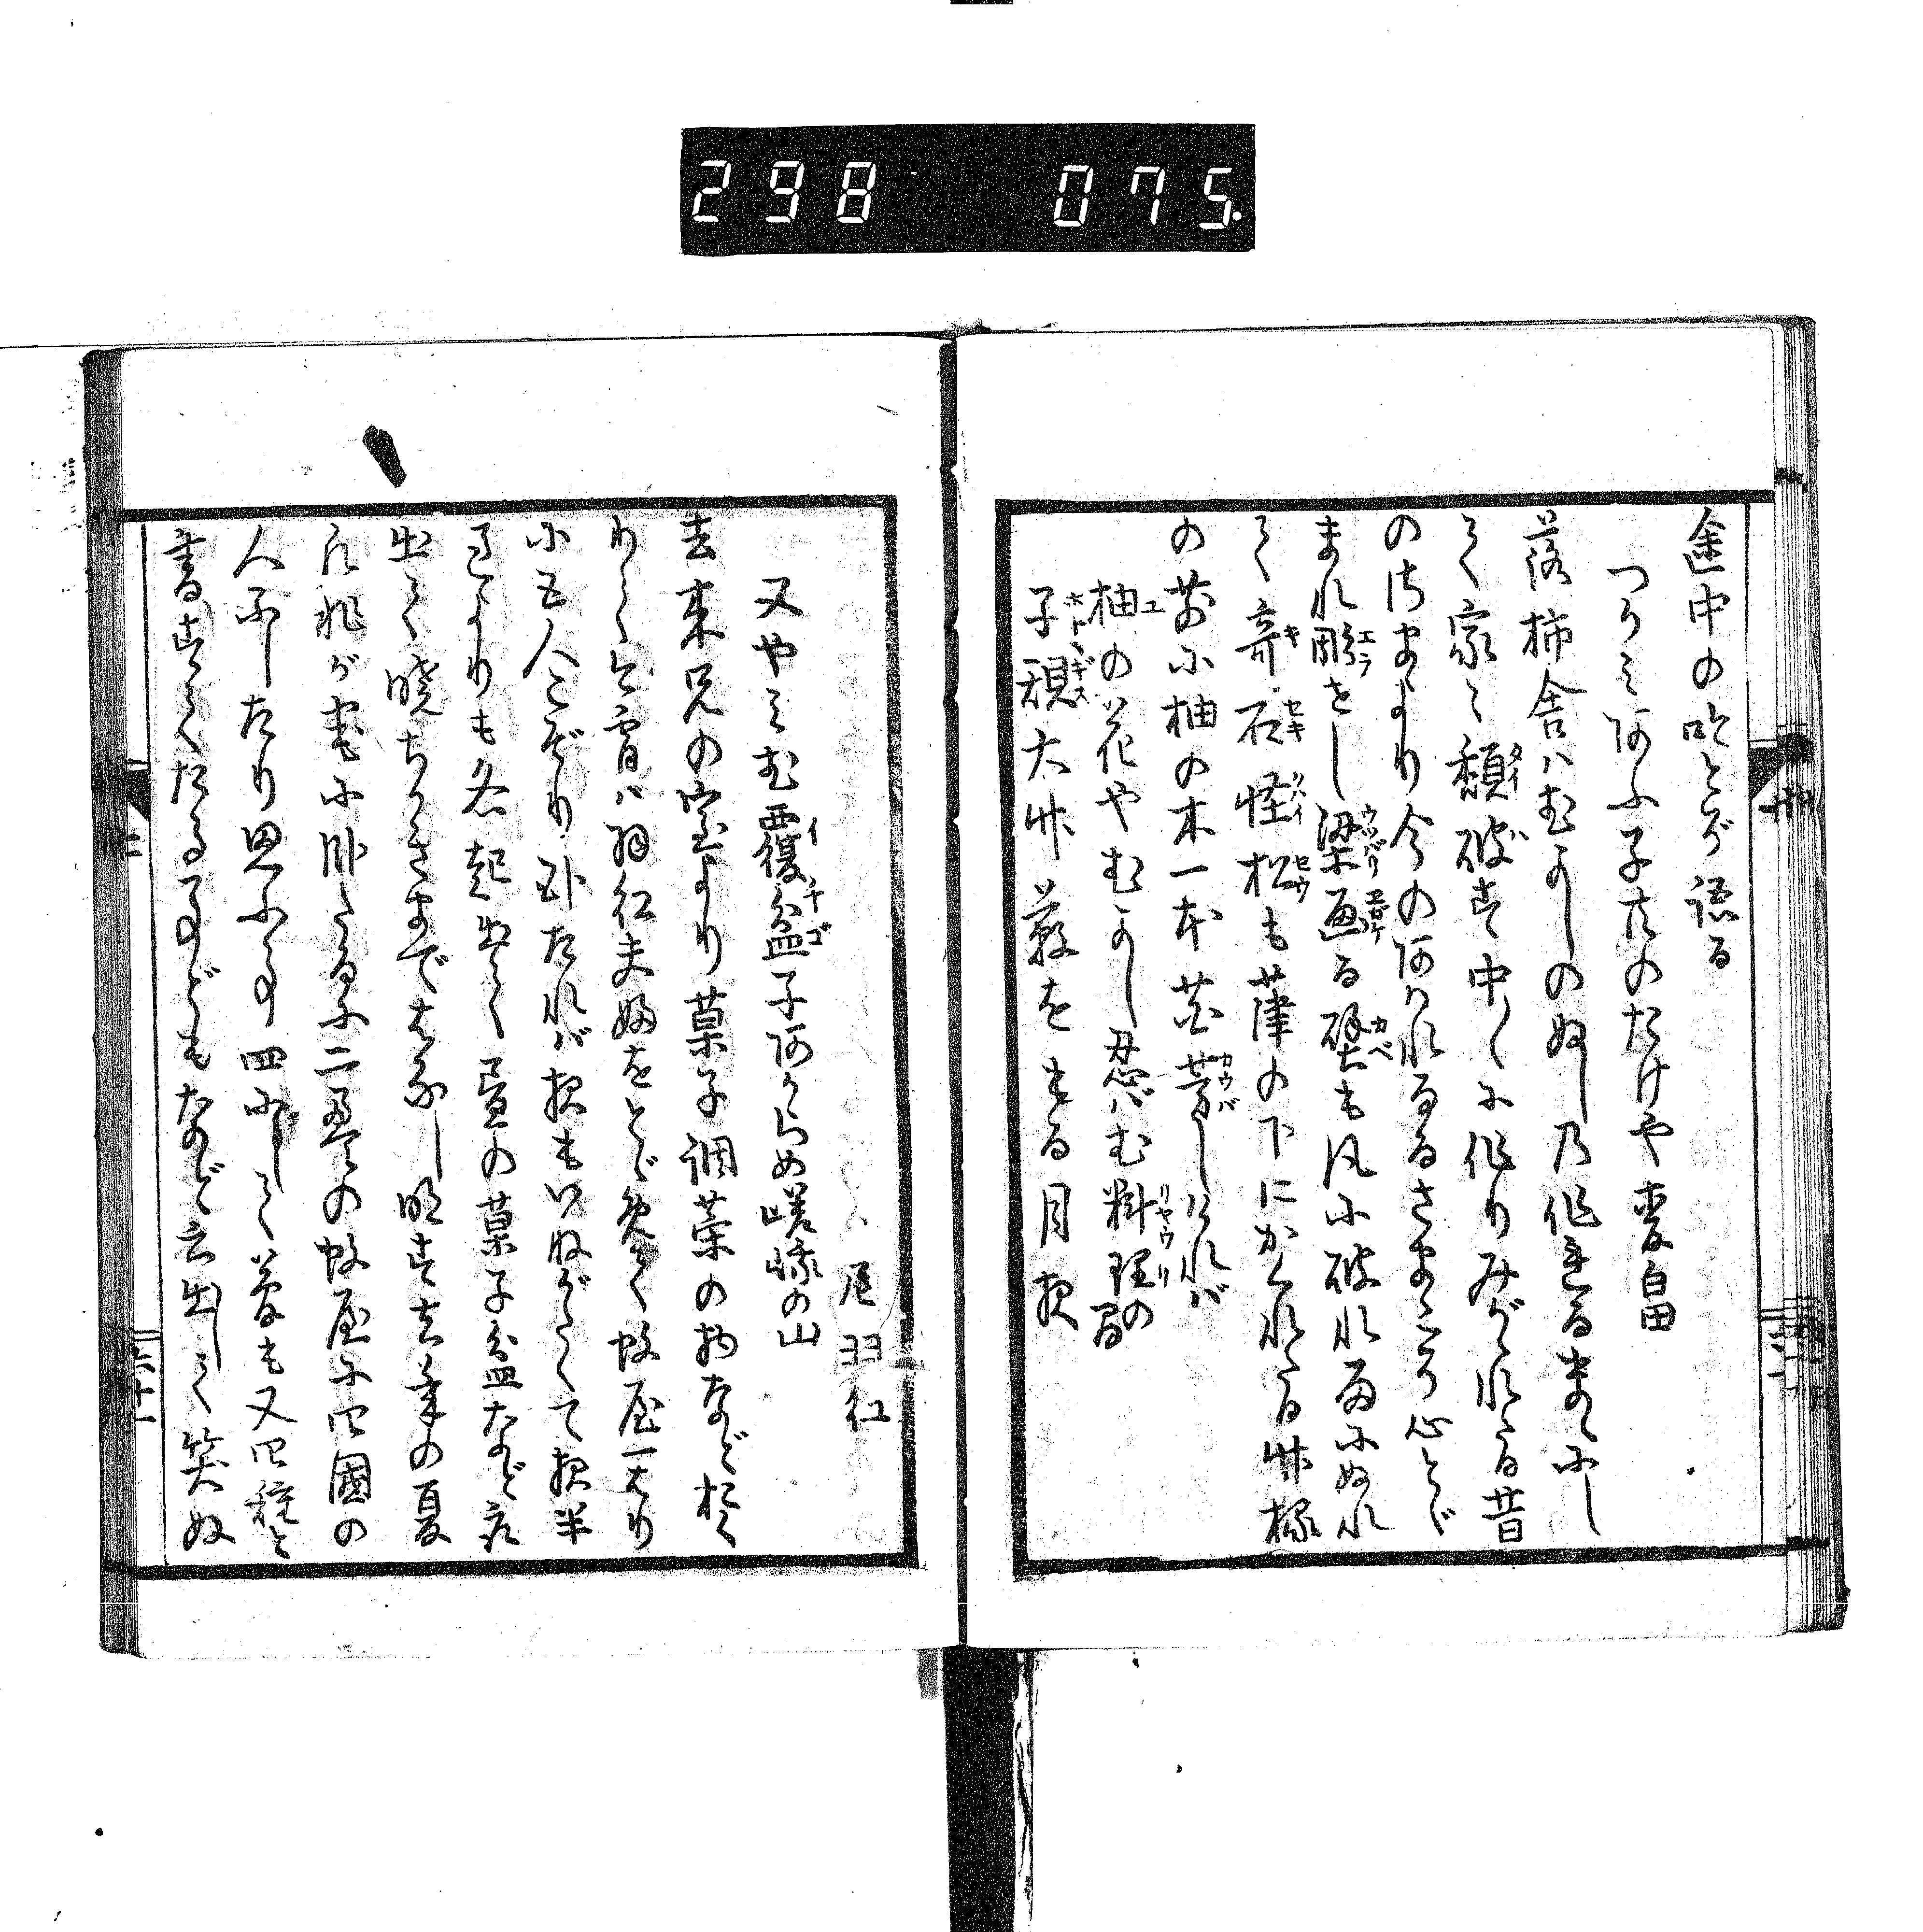 298 075
途中の吟とて語る
つかみあふ子共のたけや麦畠
落柿舎ハむかしのぬしの作れるまゝにし
て家々頽破す中〳〵に作りみがゝれたる昔
のさまより今のあはれなるさまこそ心とゞ
まれ彫せし梁画る壁も風に破れ雨にぬれ
て奇石怪松も葎の下にかくれたる竹椽
の前に柚の木一本花芳しけれバ
柚の花やむかし忍バむ料理の間
子規大竹藪をもる月夜
尼羽紅
又やこむ覆盆子あからめ嵯峨の山
去来兄の室より菓子調菜の物など おく
りて今宵ハ羽紅夫婦をとゞめて蚊屋一はり
に五人こぞり臥たれバ夜もいねがたくて夜半
過よりも各起出て昼の菓子盆など取
出て暁ちかきまではなし明す去年の夏
凡兆が宅に臥たるに二畳の蚊屋に四國の
人ふしたり思ふ事四にして夢も又四種と
書すてたる事どもなど云出して笑ぬ
六十一